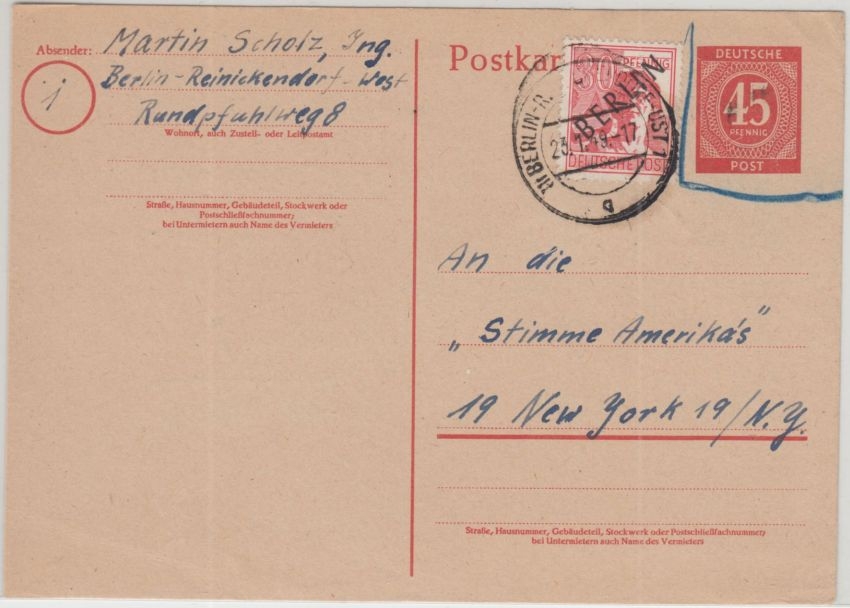 Absender: Martin Scholz, Ing.
Berlin-Reinickendorf-West
Rundpfuhlweg 8
Wohnort, auch Zustell- oder Leitpostamt
Straße, Hausnummer, Gebäudeteil, Stockwerk oder
Postschließfachnummer;
bei Untermietern auch Name des Vermieters
Postkar
PFENNIG
BERLIN
DEUTSCHE POST
BERLIN-R.
OST 1
23.
49.-17
DEUTSCHE
45
PFENNIG
POST
An die
„Stimme Amerika's"
19 New York 19/N.Y.
Straße, Hausnummer, Gebäudeteil, Stockwerk oder Postschließfachnummer;
bei Untermietern auch Name des Vermieters